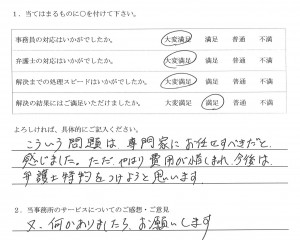 1、当てはまるものに○を付けて下さい。
事務員の対応はいかがでしたか。 大変満足 満足 普通 不満
弁護士の対応はいかがでしたか。 大変満足 満足 普通 不満
解決までの処理スピードはいかがでしたか。 大変満足 満足 普通 不満
解決の結果にはご満足いただけましたか。 大変満足 満足 普通 不満
よろしければ、具体的にご記入ください。
こういう問題は専門家にお任せすべきだと、
感じました。ただ、やはり費用が惜しまれ、今後は、
弁護士特約をつけようと思います。
2、当事務所のサービスについてのご感想・ご意見
又、何かありましたら、お願いします